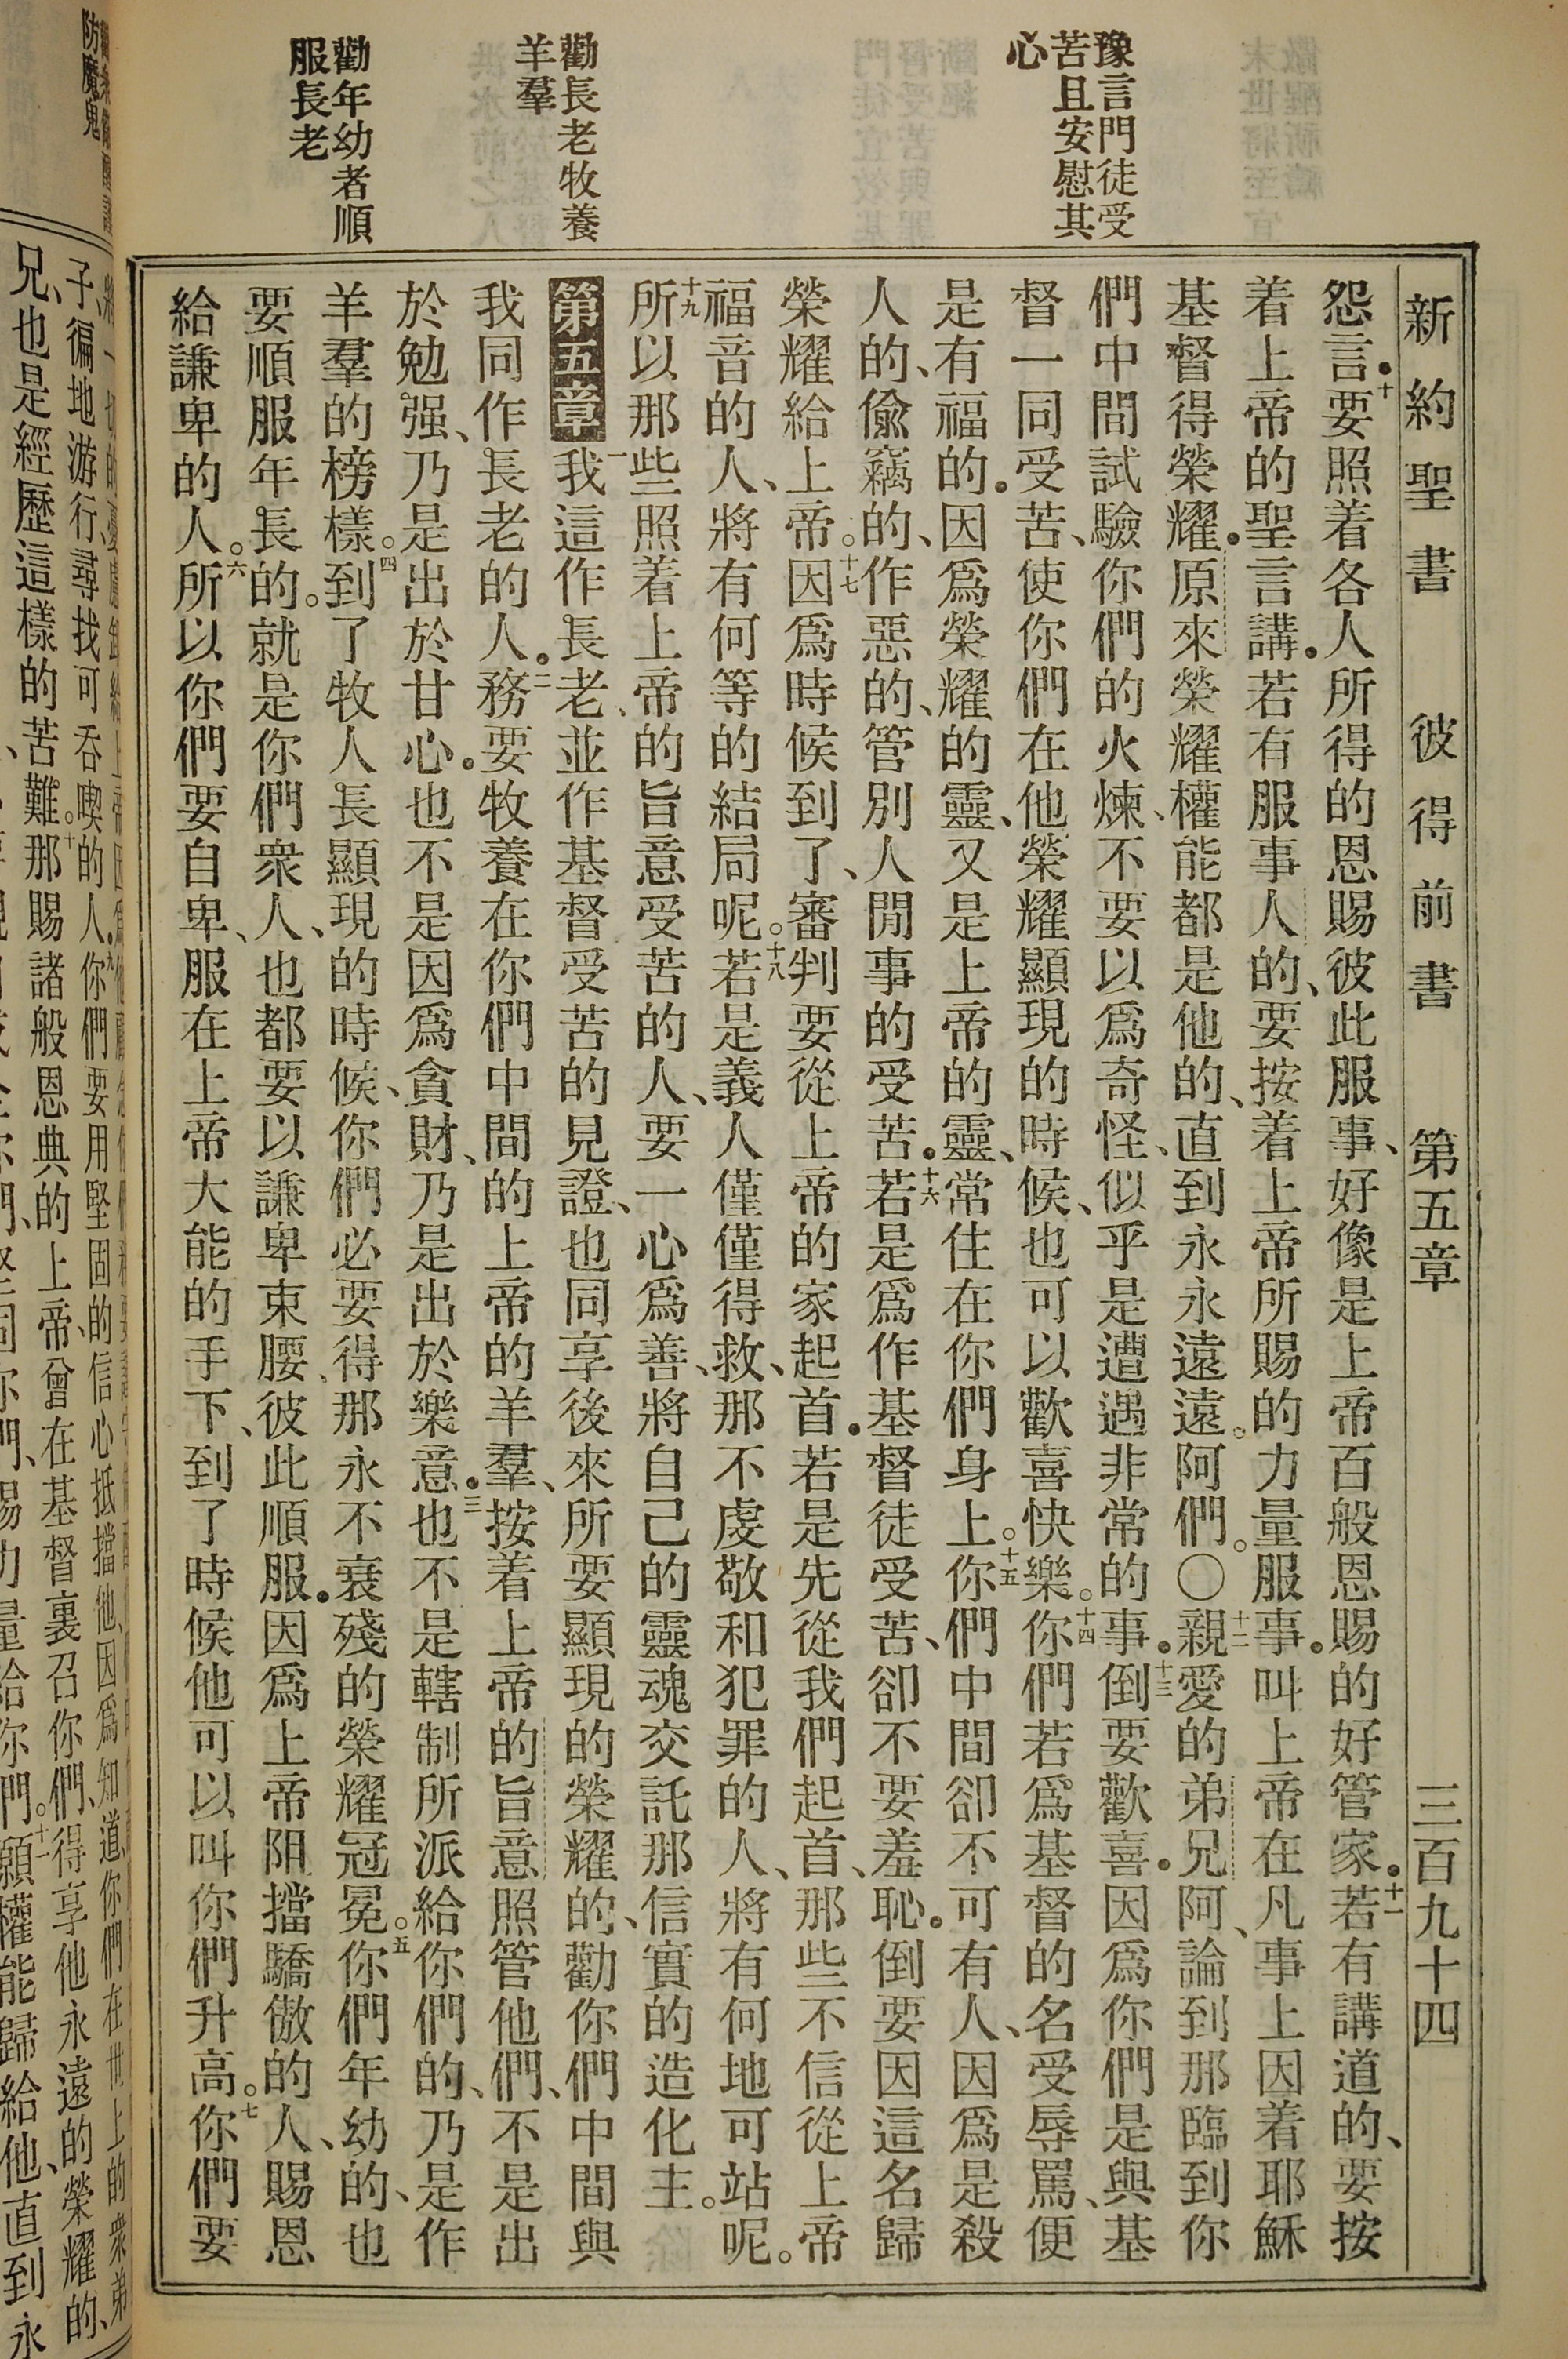 新約聖書 彼得前書 第五章 三百九十四
豫言門徒受
苦且安慰其
心
勸長老牧養
羊羣
勸年幼者順
服長老
怨言．十要照着各人所得的恩賜彼此服事、好像是上帝百般恩賜的好管家．十一若有講道的、要按
着上帝的聖言講．若有服事人的、要按着上帝所賜的力量服事．叫上帝在凡事上因着耶穌
基督得榮耀．原來榮耀權能都是他的、直到永永遠遠。阿們。〇十二親愛的弟兄阿、論到那臨到你
們中間試驗你們的火煉、不要以爲奇怪、似乎是遭遇非常的事．十三倒要歡喜．因爲你們是與基
督一同受苦、使你們在他榮耀顯現的時候、也可以歡喜快樂。十四你們若爲基督的名受辱駡、便
是有福的．因爲榮耀的靈、又是上帝的靈、常住在你們身上。十五你們中間卻不可有人、因爲是殺
人的、偸竊的、作惡的、管別人閒事的受苦．十六若是爲作基督徒受苦、卻不要羞恥．倒要因這名歸
榮耀給上帝。十七因爲時候到了、審判要從上帝的家起首．若是先從我們起首、那些不信從上帝
福音的人、將有何等的結局呢。十八若是義人僅僅得救、那不虔敬和犯罪的人、將有何地可站呢。
十九所以那些照着上帝的旨意受苦的人、要一心爲善、將自己的靈魂交託那信實的造化主。
第五章 一我這作長老、並作基督受苦的見證、也同享後來所要顯現的榮耀的、勸你們中間與
我同作長老的人．二務要牧養在你們中間的上帝的羊羣、按着上帝的旨意照管他們、不是出
於勉强、乃是出於甘心．也不是因爲貪財、乃是出於樂意．三也不是轄制所派給你們的、乃是作
羊羣的榜樣。四到了牧人長顯現的時候、你們必要得那永不衰殘的榮耀冠冕。五你們年幼的、也
要順服年長的。就是你們衆人、也都要以謙卑束腰、彼此順服．因爲上帝阻擋驕傲的人、賜恩
給謙卑的人。六所以你們要自卑、服在上帝大能的手下、到了時候他可以叫你們升高。七你們要
防魔鬼
子、徧地游行、尋找可吞喫的人．九你們要用堅固的信心抵擋他、因爲知道你們在世上的衆弟
兄、也是經歷這樣的苦難。十那賜諸般恩典的上帝、曾在基督裏召你們、得享他永遠的榮耀的、